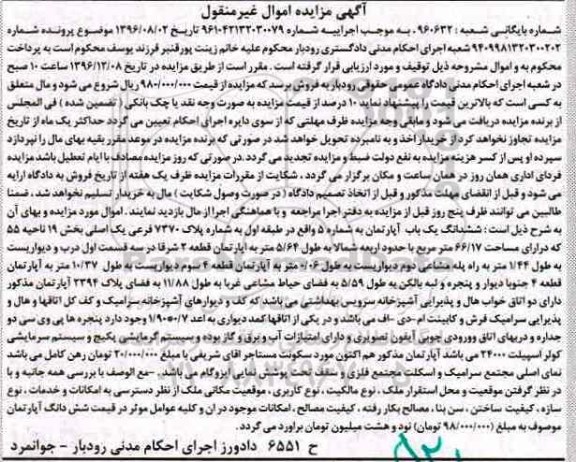 آگهی مزایده اموال غیرمنقول
شماره بایگانی شعبه: ۹۶۰۶۳۲. به موجب اجراییه شماره ۹۶۱۰۴۲۱۳۲۰۳۰۰۷۹ تاریخ ۱۳۹۶/۰۸/۰۲ موضوع پرونده شماره
۹۴۰۹۹۸۱۳۲۰۳۰۰۲۰۲ شعبه اجرای احکام مدنی دادگستری رودبار محکوم علیه خانم زینت پورقنبر فرزند یوسف محکوم است به پرداخت
محکوم به و اموال مشروحه ذیل توقیف و مورد ارزیابی قرار گرفته است. مقرر است از طریق مزایده در تاریخ ۱۳۹۶/۱۲/۰۸ ساعت ۱۰ صبح
در شعبه اجرای احکام مدنی دادگاه عمومی حقوقی رودبار به فروش برسد که مزایده از قیمت ۹۸۰/۰۰۰/۰۰۰ ریال شروع می شود و مال متعلق
به کسی است که بالاترین قیمت را پیشنهاد نماید ۱۰ درصد از قیمت مزایده به صورت وجه نقد یا چک بانکی (تضمین شده) فی المجلس
از برنده مزایده دریافت می شود و مابقی وجه مزایده ظرف مهلتی که از سوی دایره اجرای احکام تعیین می گردد حداکثر یک ماه از تاریخ
مزایده تجاوز نخواهد کرد از خریدار اخذ و به نامبرده تحویل خواهد شد در صورتی که برنده مزایده در موعد مقرر بقیه بهای مال را نپردازد
سپرده او پس از کسر هزینه مزایده به نفع دولت ضبط و مزایده تجدید می گردد. در صورتی که روز مزایده مصادف با ایام تعطیل باشد مزایده
فردای اداری همان روز در همان ساعت و مکان برگزار می گردد، شکایت از مقررات مزایده ظرف یک هفته از تاریخ فروش به دادگاه ارایه
می شود و قبل از انقضای مهلت مذکور و قبل از اتخاذ تصمیم دادگاه (در صورت وصول شکایت) مال به خریدار تسلیم نخواهد شد، ضمنا
طالبین می توانند ظرف پنج روز قبل از مزایده به دفتر اجرا مراجعه و با هماهنگی اجرا از مال بازدید نمایند. اموال مورد مزایده و بهای آن
به شرح ذیل است: ششدانگ یک باب آپارتمان به شماره ۵ واقع در طبقه اول به شماره پلاک ۷۳۷۰ فرعی یک اصلی بخش ۱۹ ناحیه ۵۵
که درارای مساحت ۶۶/۱۷ متر مربع با حدود اربعه شمالا به طول ۵/۶۴ متر به آپارتمان قطعه ۲ شرقا در سه قسمت اول درب و دیواریست
به طول ۱/۴۴ متر به راه پله مشاعی دوم دیواریست به طول ۰/۰۶ متر به آپارتمان قطعه ۴ سوم دیواریست به طول ۱۰/۳۷ متر به آپارتمان
قطعه ۴ جنوبا دیوار و پنجره و لبه بالکن به طول ۵/۵۹ به فضای حیاط مشاعی غربا به طول ۱۱/۸۸ به فضای پلاک ۲۳۹۴ آپارتمان مذکور
دارای دو اتاق خواب هال و پذیرایی آشپزخانه سرویس بهداشتی می باشد که کف و دیوارهای آشپزخانه سرامیک و کف کل اتاقها و هال و
پذیرایی سرامیک فرش و کابینت ام-دی-اف می باشد و در یکی از اتاقها کمد دیواری به ابعاد ۰/۷×۱/۹۰ وجود دارد پنجره ها پی وی سی دو
جداره و دربهای اتاق ورودی چوبی آیفون تصویری و دارای امتیازات آب و برق و گاز بوده و سیستم گرمایشی پکیج و سیستم سرمایشی
کولر اسپیلت ۲۴۰۰۰ می باشد آپارتمان مذکور هم اکنون مورد سکونت مستاجر اقای شریفی با مبلغ ۲۰/۰۰۰/۰۰۰ تومان رهن کامل می باشد
نمای اصلی مجتمع سرامیک و اسکلت مجتمع فلزی و سقف تحت پوشش نمایی ایزوگام می باشد. -مع الوصف با بررسی همه جانبه و با
در نظر گرفتن موقعیت و محل استقرار ملک، نوع مالکیت، نوع کاربری، موقعیت مکانی ملک از نظر دسترسی به امکانات و خدمات، نوع
سازه، کیفیت ساختن، سن بنا، مصالح بکار رفته، کیفیت مصالح، امکانات موجود در ان و کلیه عوامل موثر در قیمت شش دانگ آپارتمان
موصوف به مبلغ (۹۸/۰۰۰/۰۰۰ تومان) نود و هشت میلیون تومان براورد می گردد.
ح ۶۵۵۱ دادورز اجرای احکام مدنی رودبار - جوانمرد